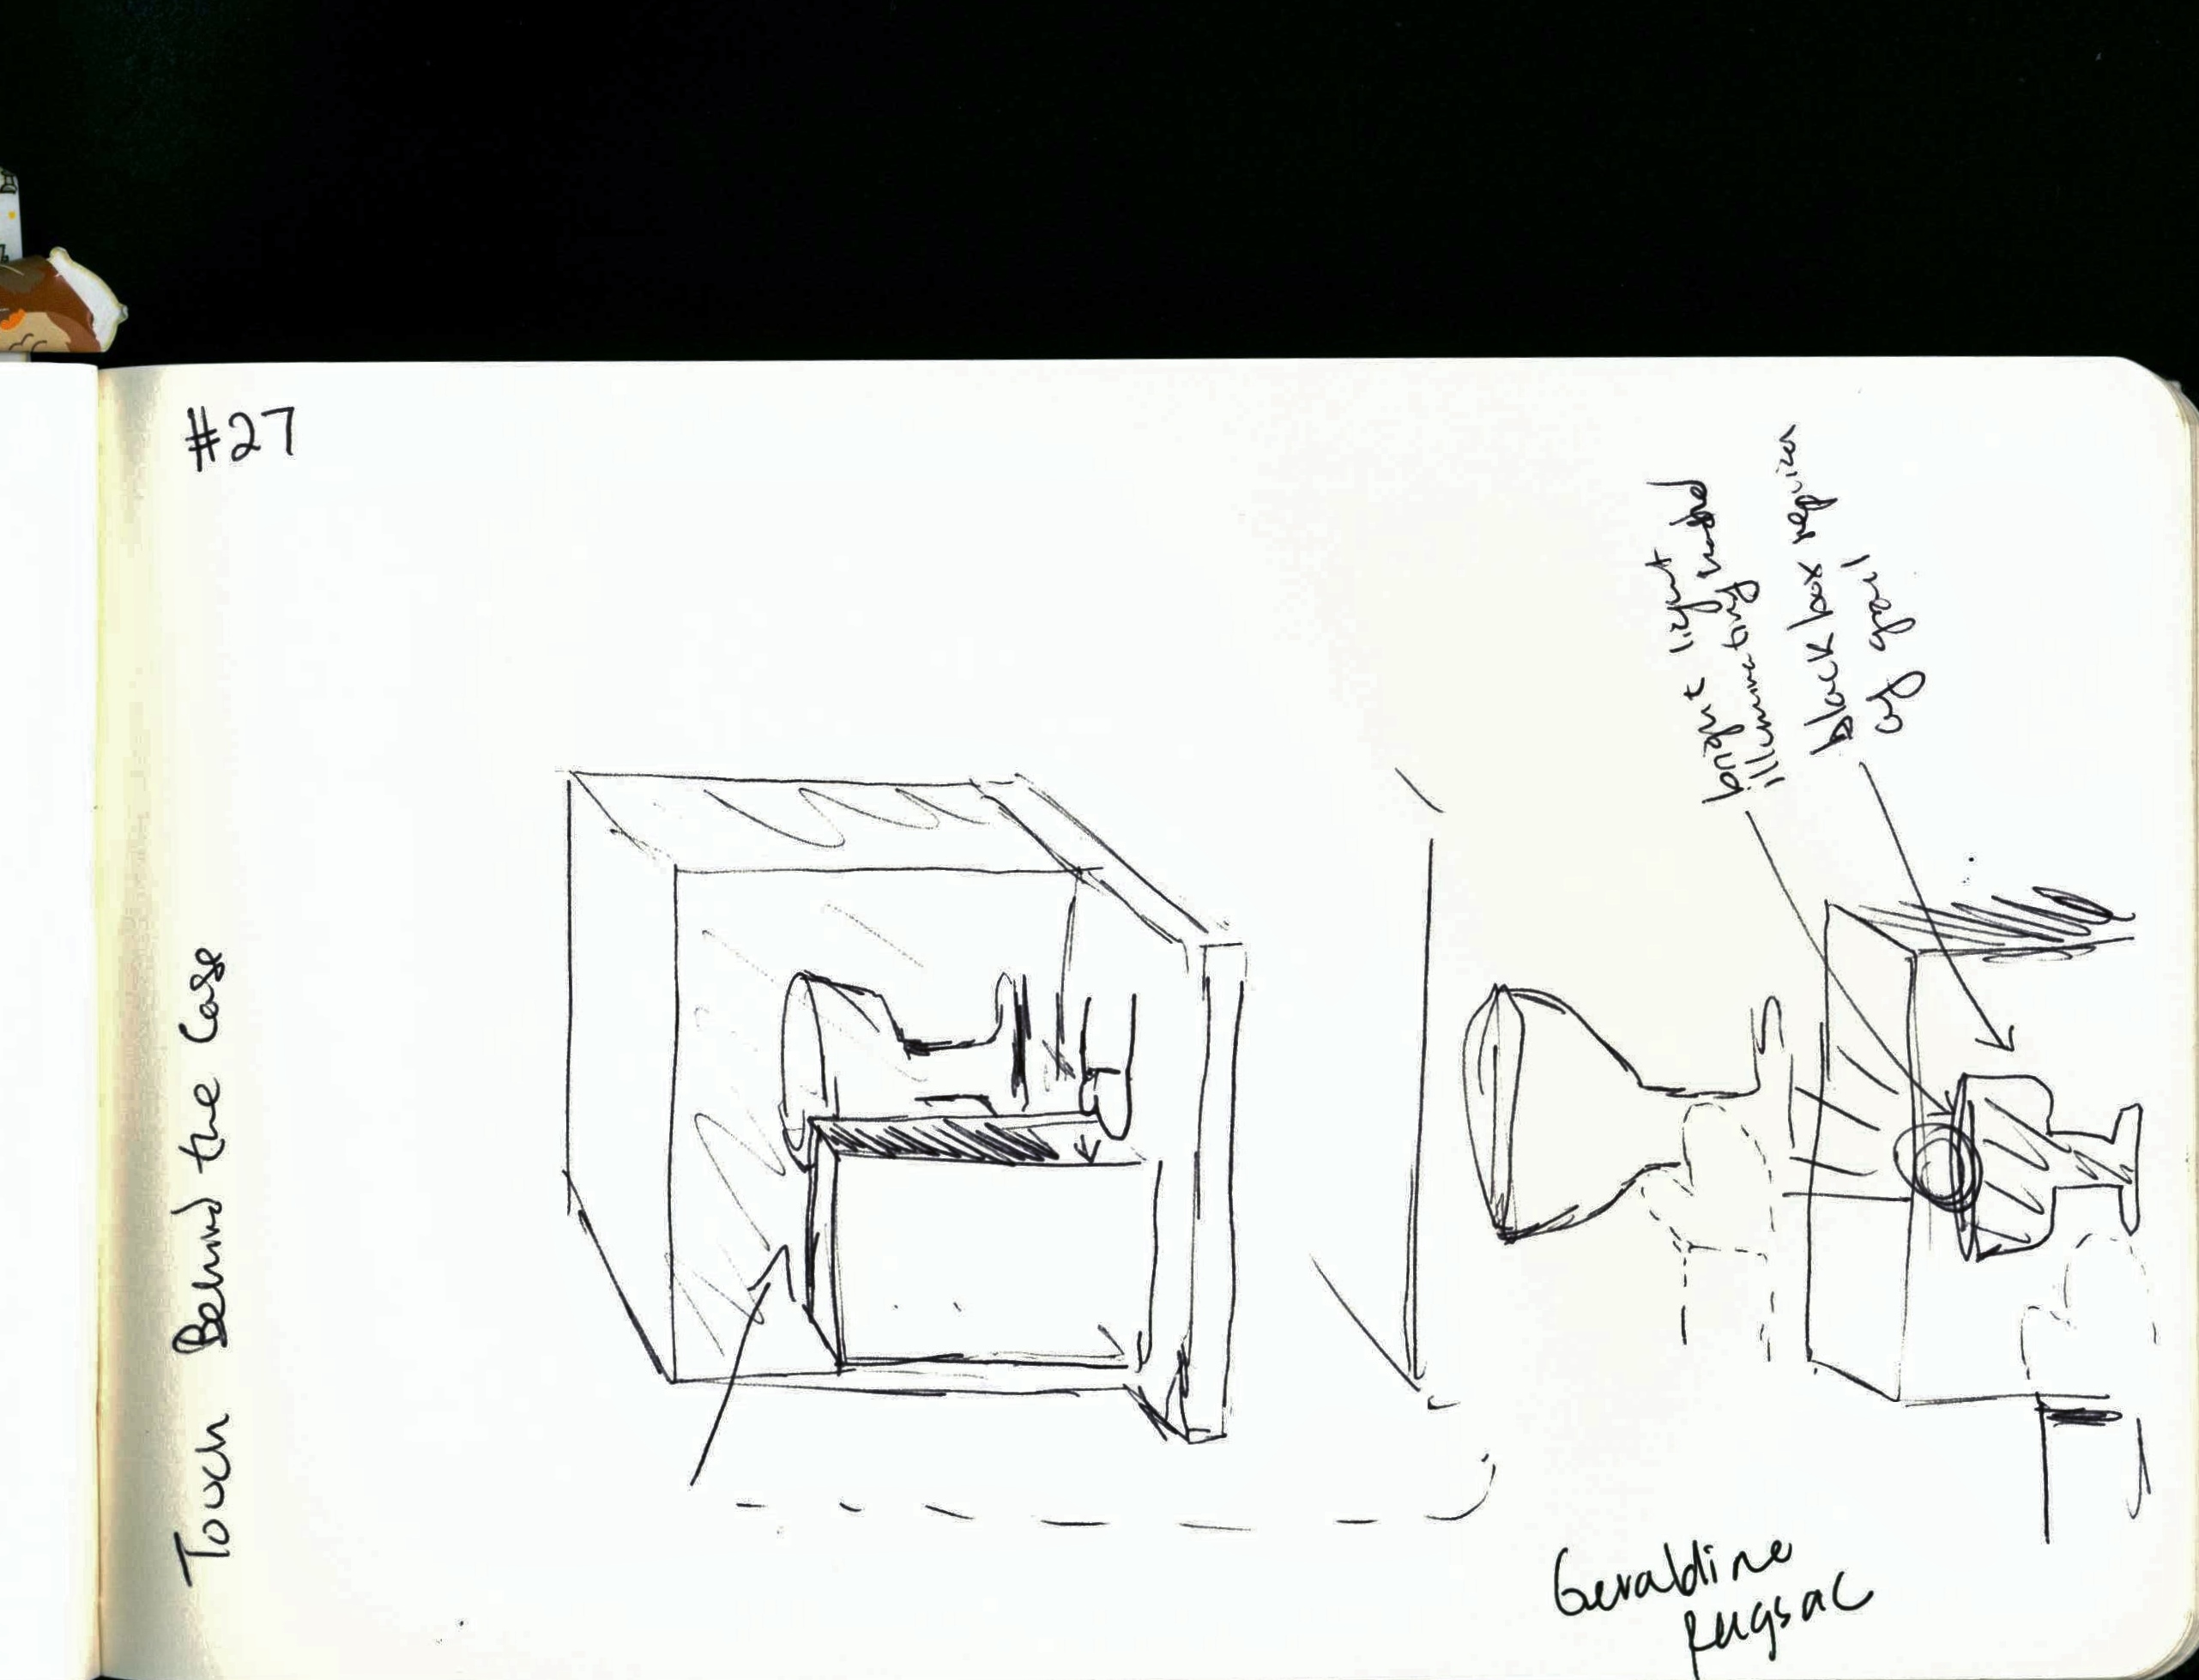 #27
Touch Behind the Case
bright light
illuminating model
black box requires
of grail
Geraldine